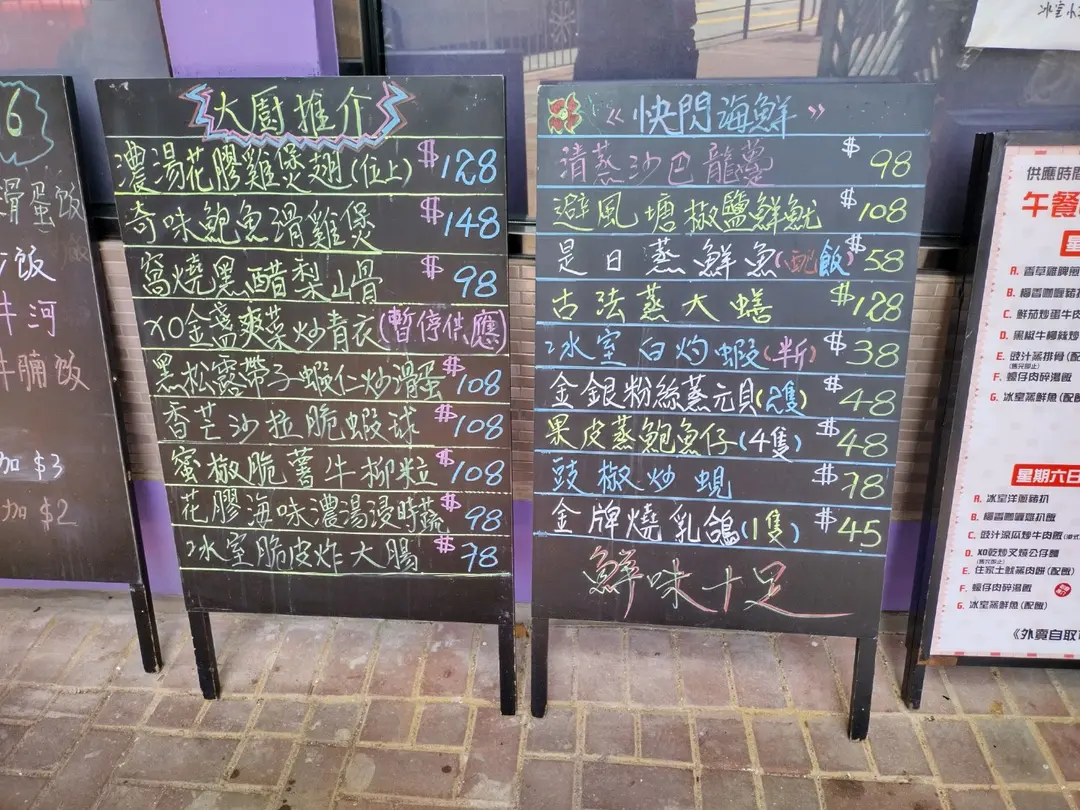 冰室小
6
滑蛋飯
飯
牛河
牛腩飯
加 $3
加 $2
大廚推介
濃湯花膠雞煲翅(位上) $128
奇味鮑魚滑雞煲 $148
窩燒黑醋梨山骨 $98
XO金盞爽菜炒青衣(暫停供應)
黑松露帶子蝦仁炒滑蛋 $108
香芒沙拉脆蝦球 $108
蜜椒脆薯牛柳粒 $108
花膠海味濃湯浸時蔬 $98
冰室脆皮炸大腸 $78
《快閃海鮮》
清蒸沙巴龍躉 $98
避風塘椒鹽鮮魷 $108
是日蒸鮮魚(配飯) $58
古法蒸大鱔 $128
冰室白灼蝦(半斤) $38
金銀粉絲蒸元貝(2隻) $48
果皮蒸鮑魚仔(4隻) $48
豉椒炒蜆 $78
金牌燒乳鴿(1隻) $45
鮮味十足
供應時間
午餐
星
A. 香草雞脾煎
B. 椰香咖喱豬扒
C. 鮮茄炒蛋牛肉
D. 黑椒牛柳絲炒
E. 豉汁蒸排骨(配
(售完即止)
F. 蠔仔肉碎湯飯
G. 冰室蒸鮮魚(配飯
星期六日
A. 冰室洋蔥豬扒
B. 椰香咖喱雞扒飯
C. 豉汁涼瓜炒牛肉飯
D. XO乾炒叉燒公仔麵
(售完即止)
E. 住家土魷蒸肉餅(配飯)
F. 蠔仔肉碎湯飯
G. 冰室蒸鮮魚(配飯)
《外賣自取